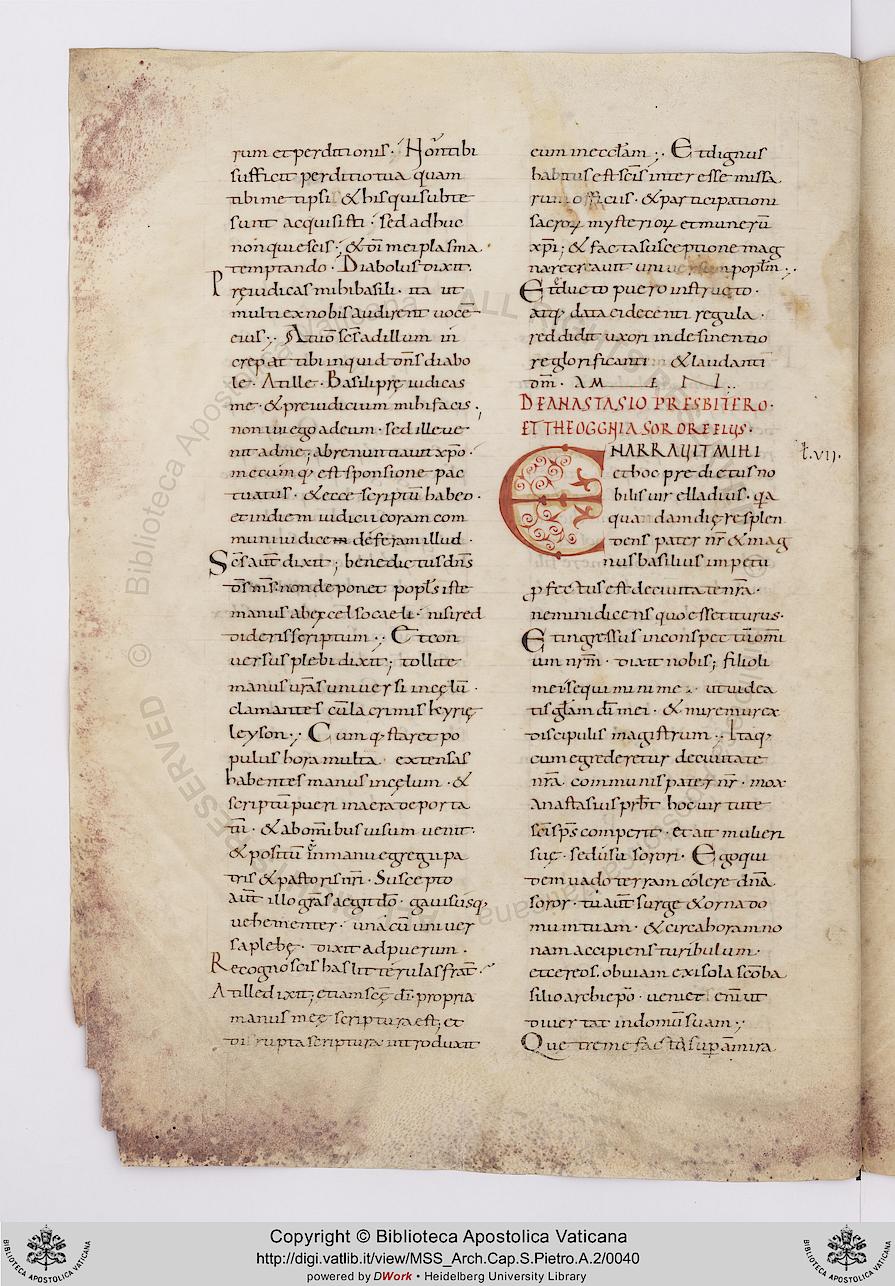 rum et perditionis · Hoñ tibi
sufficit perditio tua quam
tibimetipsi · & his qui subte
sunt acquisisti · sed adhuc
non quiescis ; & dī mei plasma
temptando · Diabolus dixit ·
Pręiudicas mihi basili · ita ut
multi ex nobis audirent uocē
eius ·, At uō s̄cs ad illum in
crepat tibi inquid dn̄s diabo
le · At ille · Basili pręiudicas
me · & preiudicium mihi facis ·
non iui ego ad eum · sed ille ue
nit ad me ; abrenuntiauit xp̄o ·
mecumq; est sponsione pac
tuatus · & ecce scriptū habeo ·
et in diem iudicii coram com
muni iudicem deferam illud ·
S̄cs aut̄ dixit ; benedictus dn̄s
d̄s m̄s · non deponet popl̄s iste
manus ab excelso caeli · nisi red
dideris scriptum ·, Et con
uersus plebi dixit ; tollite
manus ur̄as uniuersi in cęlū ·
clamantes cū lacrimis kyrię
leyson ·, Cumq; staret po
pulus hora multa · extensas
habentes manus in cęlum · &
scriptū pueri in aera deporta
tū · & ab om̄ibus uisum uenit ·
& positū in manu egregii pa
tris & pastoris nr̄i · Suscepto
aut̄ illo gr̄as aegit dō · gauisusq;
uehementer · una cū uniuer
sa plebę · dixit ad puerum ·
Recognoscis has litterulas frat̄ ·
At ille dixit ; etiam s̄cę dī · propria
manus męę scriptura est ; et
disrupta scriptura introduxit
eum in ecc̄lam ·, Et dignus
habitus est s̄cis interesse missa
rum officiis · & participationi
sacroꝝ mysterioꝝ et munerū
xp̄i ; & facta susceptione mag
na recreauit uniuersum popl̄m ·,
Et ducto puero instructo ·
atq; data ei decenti regula ·
reddidit uxori indesinentio
re glorificanti & laudanti
dm̄ · AMEN ·,
DE ANASTASIO PRESBITERO ·
ET THEOGGHIA SORORE EIUS ·
ENARRAUIT MIHI
et hoc predictus no
bilis uir elladius · q̄a
quadam dię resplen
dens pater nr̄ & mag
nus basilius impetu
ꝓfectus est de ciuitate nr̄a ·
nemini dicens quo esset iturus ·
Et ingressus in conspectū omi
um nrm̄ · dixit nobis ; filioli
mei sequimini me ·, ut uidea
tis gl̄am dī mei · & miremur ex
discipulis magistrum ·, Itaq;
cum egrederetur de ciuitate
nr̄a communis pater nr̄ · mox
Anastasius prb̄t hoc uirtute
sc̄i sp̄s comperit · et ait mulieri
suę · sed uisu sorori · Ego qui
dem uado terram colere dn̄a
soror · tu aut̄ surge & orna do
mum tuam · & circa horam no
nam accipiens turibulum ·
et cereos, obuiam exi sola sc̄o ba
silio archiep̄o · ueniet enī ut
diuertat in domū suam ·,
Quę treme facta supa ammira
t.vij.
Copyright © Biblioteca Apostolica Vaticana
http://digi.vatlib.it/view/MSS_Arch.Cap.S.Pietro.A.2/0040
powered by DWork • Heidelberg University Library